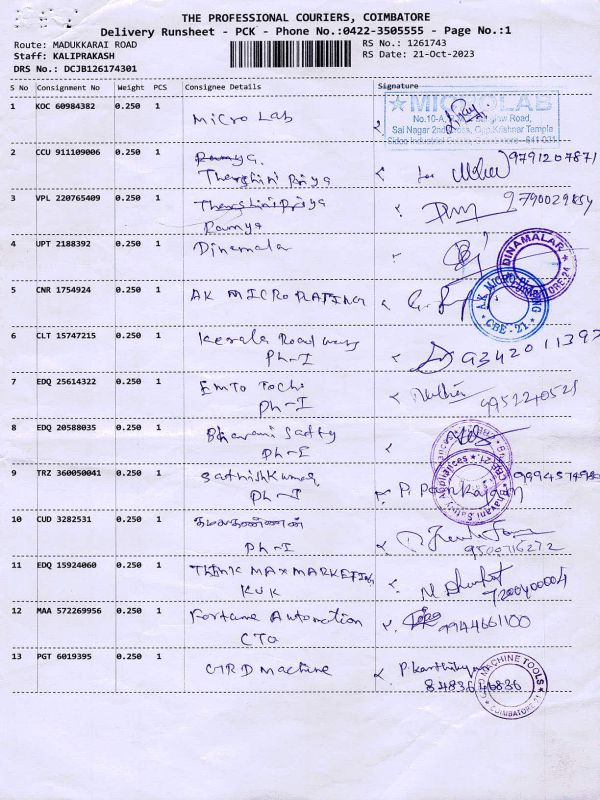 THE PROFESSIONAL COURIERS, COIMBATORE
Delivery Runsheet - PCK - Phone No.:0422-3505555 - Page No.:1
Route: MADUKKARAI ROAD
RS No.: 1261743
Staff: KALIPRAKASH
RS Date: 21-Oct-2023
DRS No.: DCJB126174301
S No Consignment No Weight PCS Consignee Details Signature
1 KOC 60984382 0.250 1 Micro Lab
★MICROLAB
Sai Nagar 2nd Cross, Opp.Krishnar Temple
2 CCU 911109006 0.250 1 Ramya.
Tharshini Priya 9791207871
3 VPL 220765409 0.250 1 Tharshini Priya
Ramya
4 UPT 2188392 0.250 1 Dinamalar
DINAMALAR
5 CNR 1754924 0.250 1 AK MICROPLATING
A.K MICRO PLATING
CBE-21
6 CLT 15747215 0.250 1 Kerala Roadways
Ph-I
7 EDQ 25614322 0.250 1 EMTO
Ph-I
8 EDQ 20588035 0.250 1 Bhavani
Ph-I
9 TRZ 360050041 0.250 1 SathishKumar
Ph-I
10 CUD 3282531 0.250 1
Ph-I 9500716272
11 EDQ 15924060 0.250 1 THINK MAX MARKETING
KCK 7200400004
12 MAA 572269956 0.250 1 Fortune Automation
CTO 9944661100
13 PGT 6019395 0.250 1 GRD Machine
P. Karthikeyan
8483646836
MACHINE TOOLS
COIMBATORE-21